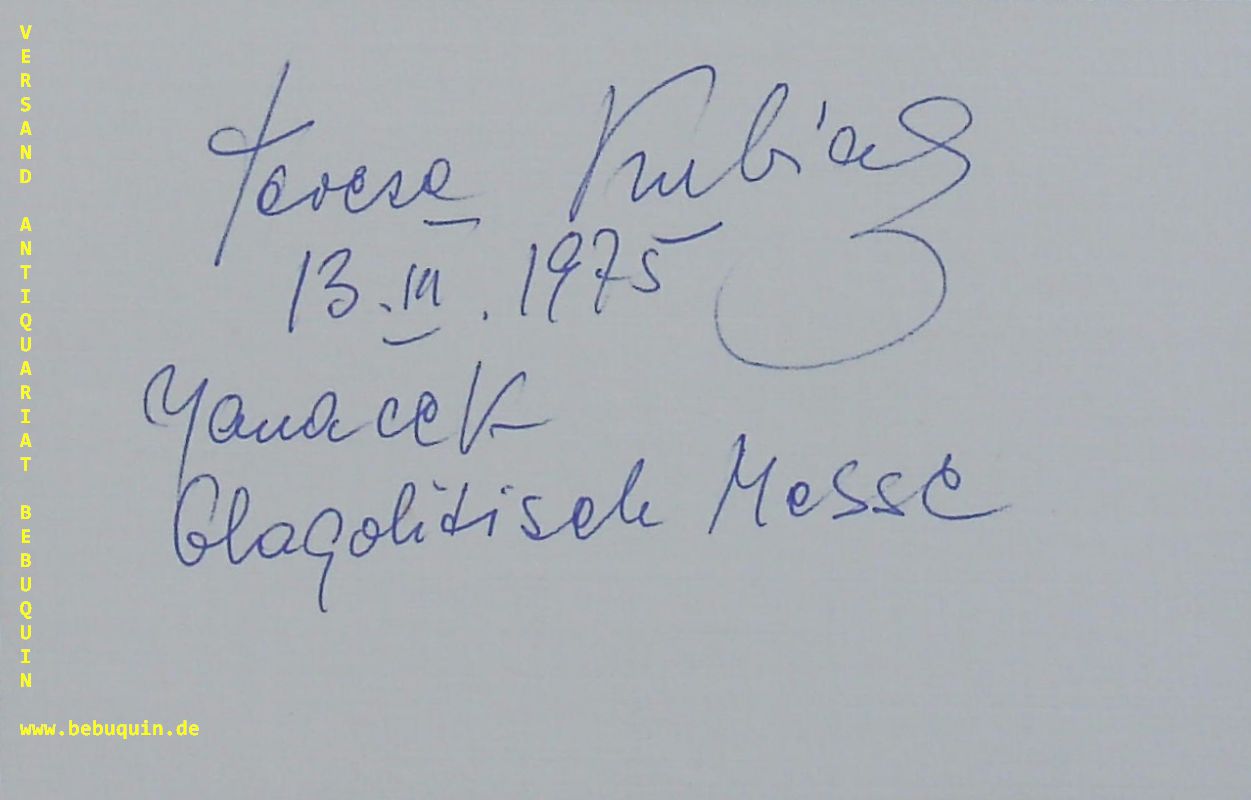 VERSAND ANTIQUARIAT BEBUQUIN
Teresa Kubiak
13.III.1975
Yanacek
Glagolitisch Messe
www.bebuquin.de